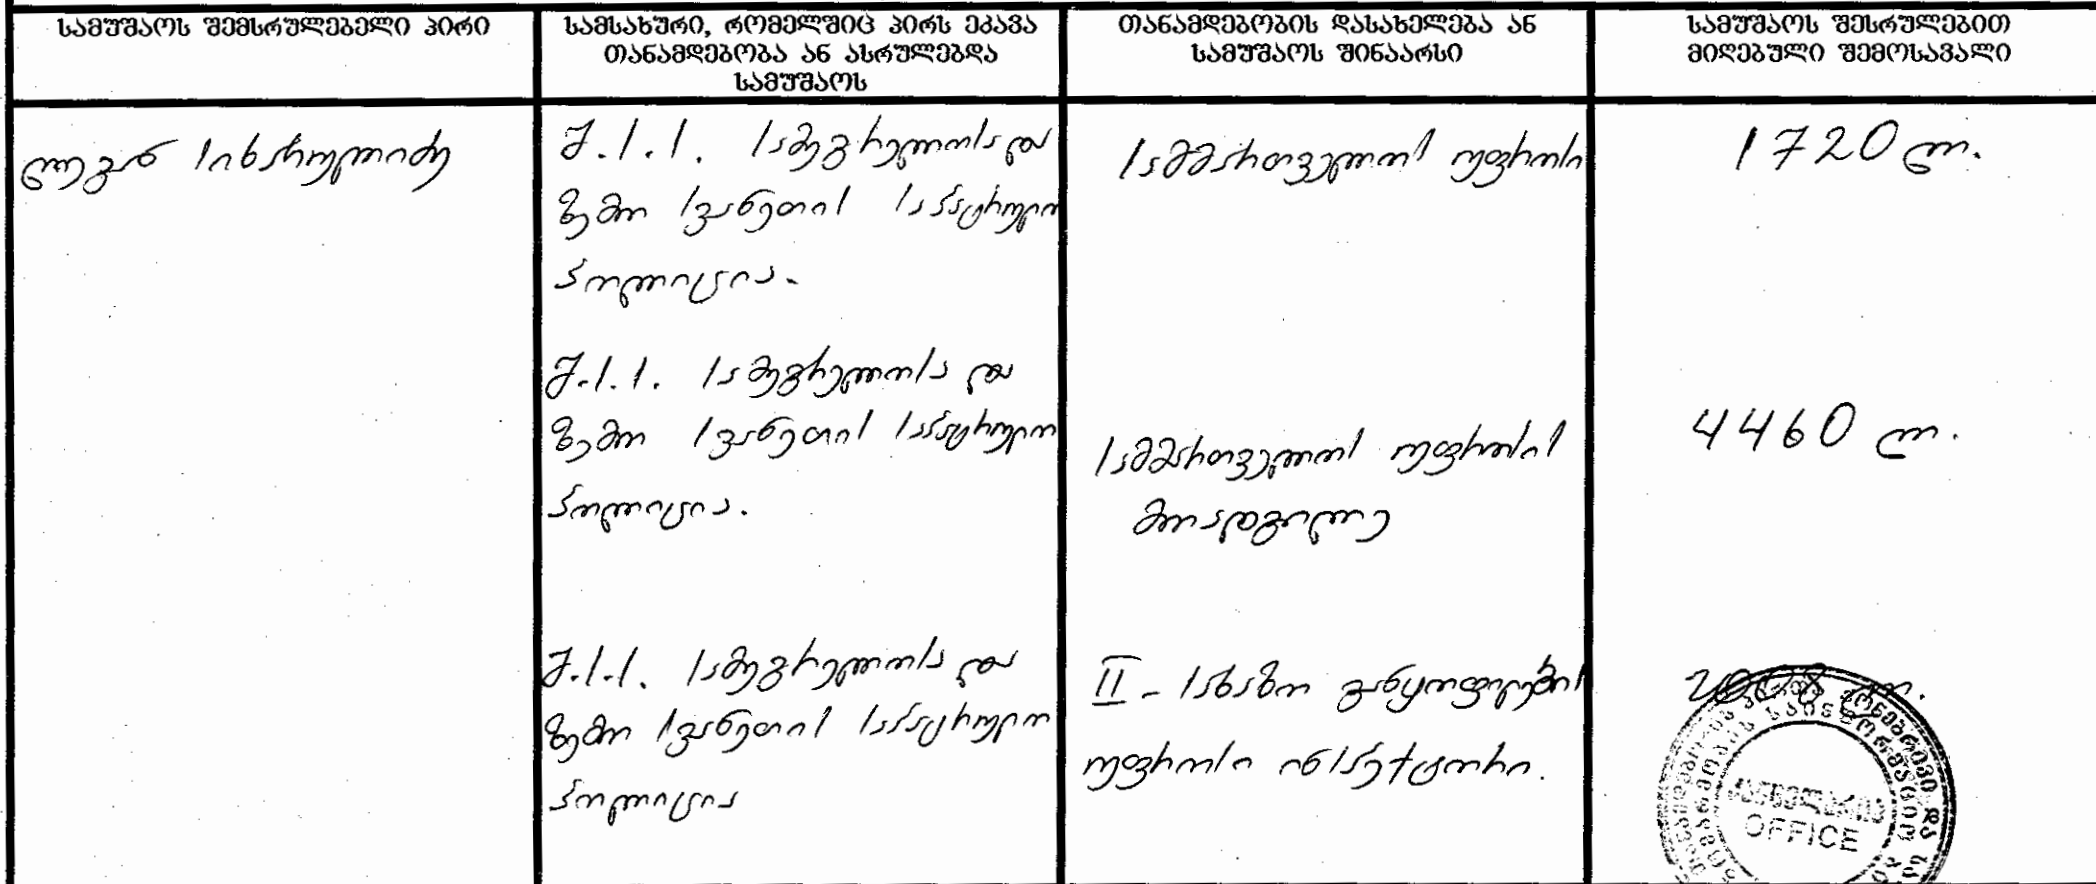 სამუშაოს შემსრულებელი პირი
სამსახური, რომელშიც პირს ეკავა
თანამდებობა ან ასრულებდა
სამუშაოს
თანამდებობის დასახელება ან
სამუშაოს შინაარსი
სამუშაოს შესრულებით
მიღებული შემოსავალი
ლევან სიხარულიძე
შ.ს.ს. სამეგრელოსა და
ზემო სვანეთის საპატრულო
პოლიცია.
სამმართველოს უფროსი
1720 ლ.
შ.ს.ს. სამეგრელოსა და
ზემო სვანეთის საპატრულო
პოლიცია.
სამმართველოს უფროსის
მოადგილე
4460 ლ.
შ.ს.ს. სამეგრელოსა და
ზემო სვანეთის საპატრულო
პოლიცია
II - სახაზო განყოფილების
უფროსი ინსპექტორი.
ლ.
კანცელარია
OFFICE